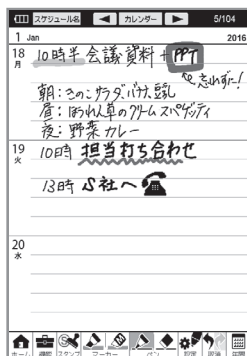 スケジュール名 ◀ カレンダー ▶ 5/104
1 Jan 2016
18 月 10時半 会議資料+PPT
忘れずに!
朝:きのこサラダ、バナナ、豆乳
昼:ほうれん草のクリームスパゲッティ
夜:野菜カレー
19 火 10時 担当打ち合わせ
13時 S社へ
20 水
ホーム 機能 スタンプ マーカー ペン 設定 取消